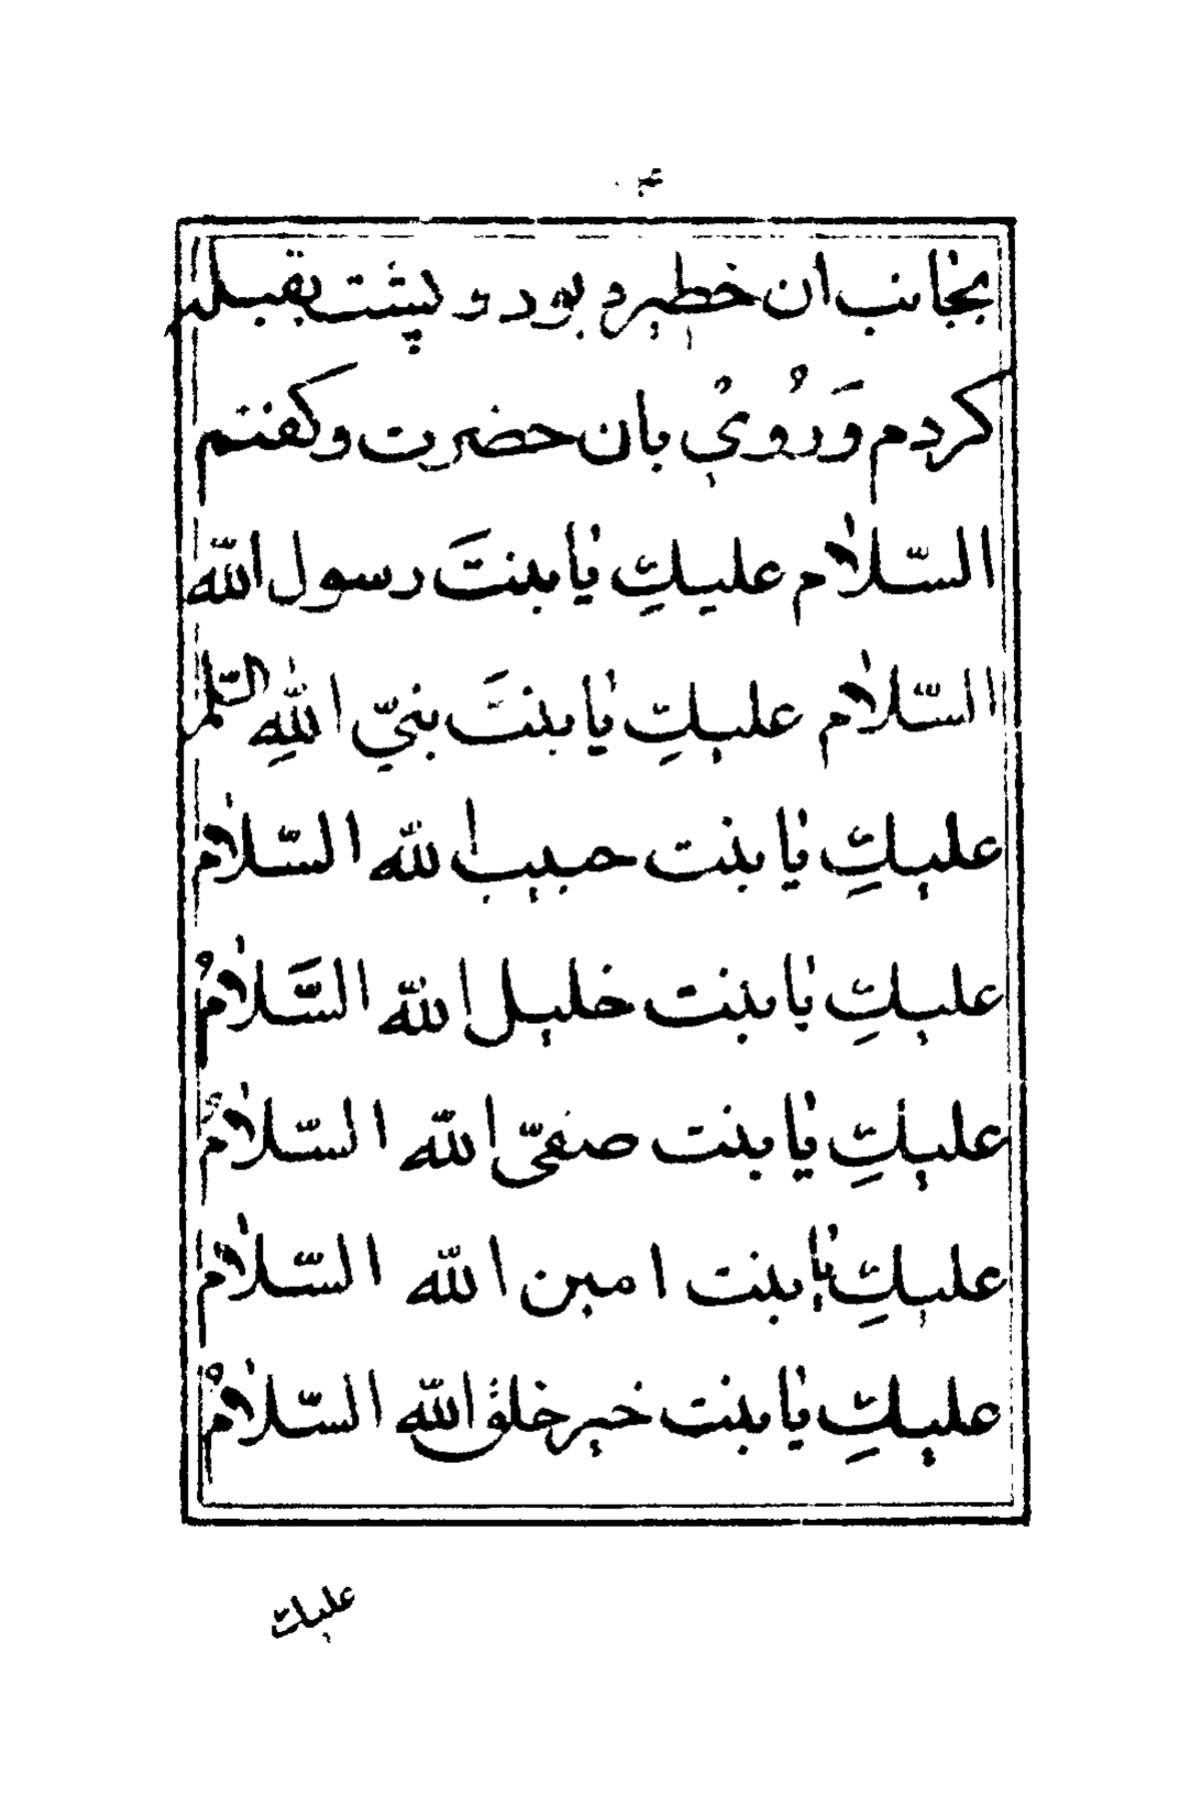 بجانب ان خطیره بود و پشت بقبله
کردم وَ رُویْ بان حضرت و کفتم
السّلام علیكِ یا بنتَ رسول الله
السّلام علیكِ یا بنتَ نبیّ اللهِ السّلم
علیكِ یا بنت حبیب الله السّلام
علیكِ یا بنت خلیل الله السَّلامُ
علیكِ یا بنت صفیّ الله السّلامُ
علیكِ یا بنت امین الله السّلام
علیكِ یا بنت خیر خلق الله السّلامُ
علیك